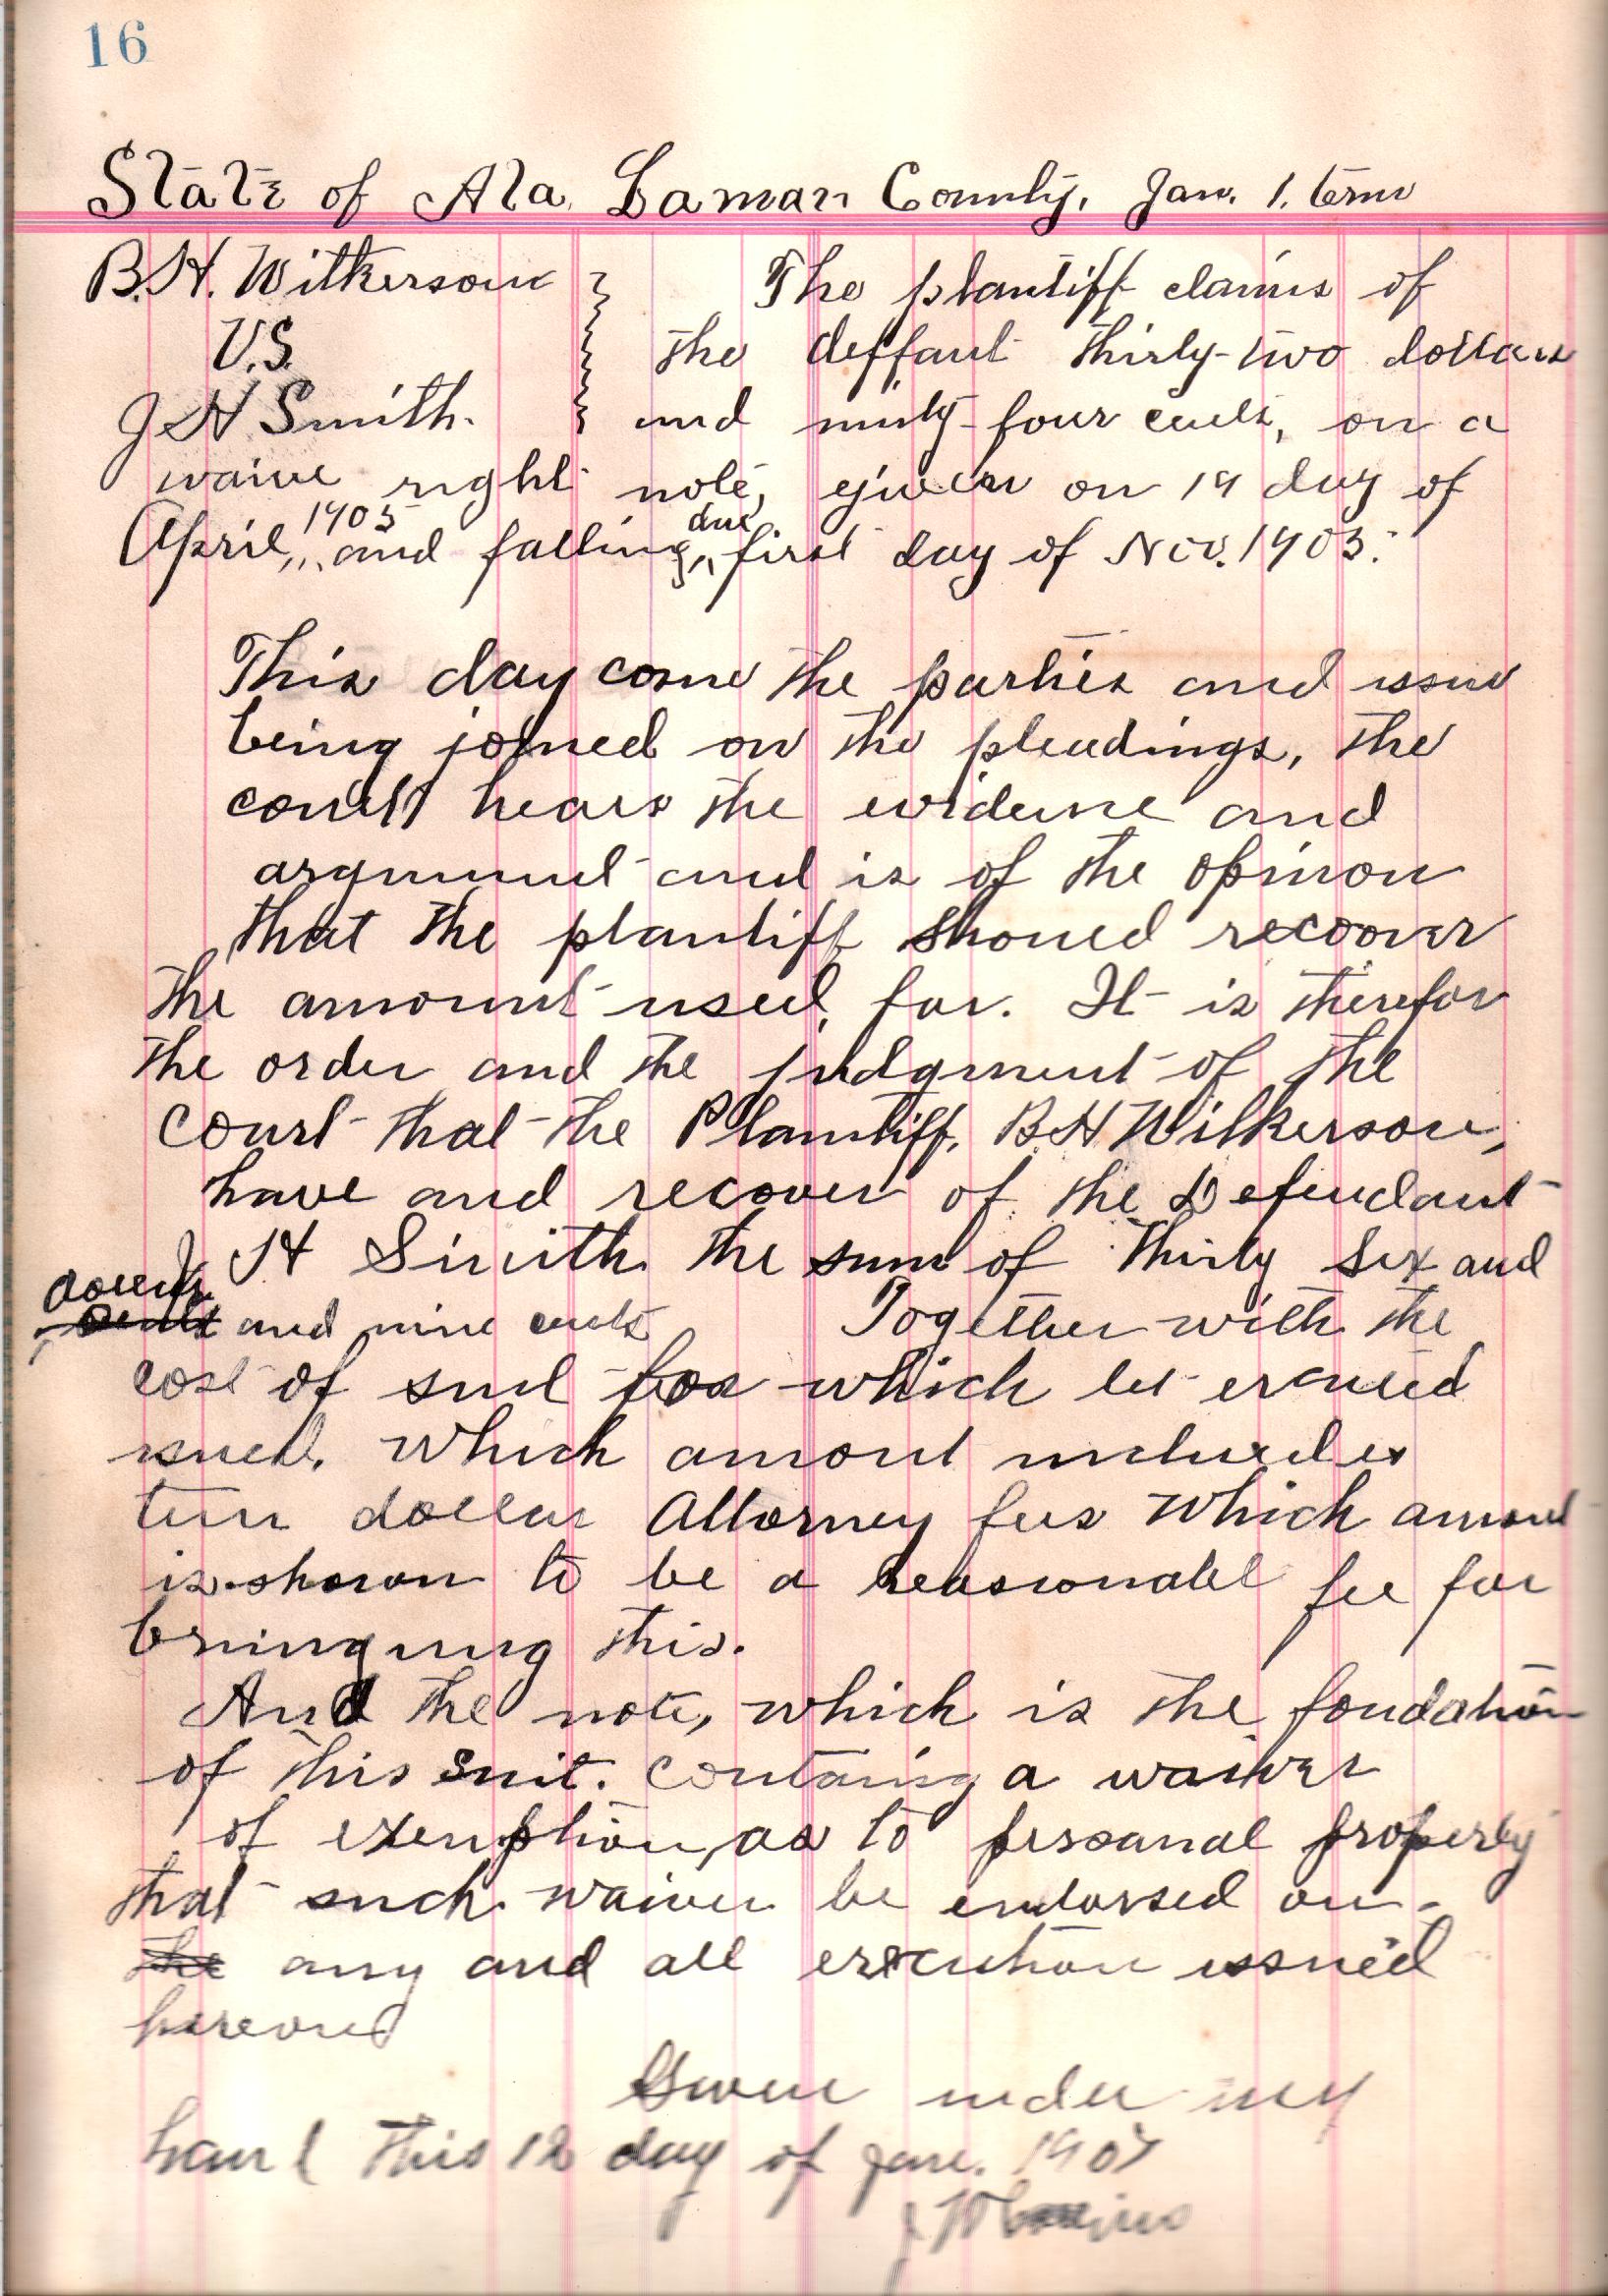 16
State of Ala. Lamar County, Jan. 1. term
B.H. Wilkerson The plantiff claims of
V.S. the deffant thirty-two dollars
J H Smith. and ninty-four cents, on a
waive right note, given on 19 day of
April, 1905 and falling due first day of Nov. 1905.
This day come the parties and issue
being joined on the pleadings, the
court hears the evidence and
argument and is of the opinion
that the plantiff should recover
the amount sued for. It is therefor
the order and the judgment of the
court that the Plantiff, B H Wilkerson,
have and recover of the Defendant
J H Smith the sum of Thirty Six and
dollars cents and nine cents Together with the
cost of suit for which let
issued. Which amount includes
ten dollar Attorney fees which amount
is shown to be a reasonabl fee for
bringing this.
And the note, which is the foudation
of this suit. containg a waiver
of exemption, as to personal property
that such waiver be endorsed on
the any and all execution issued
hereon
Given under my
hand this 12 day of Jane. 1907